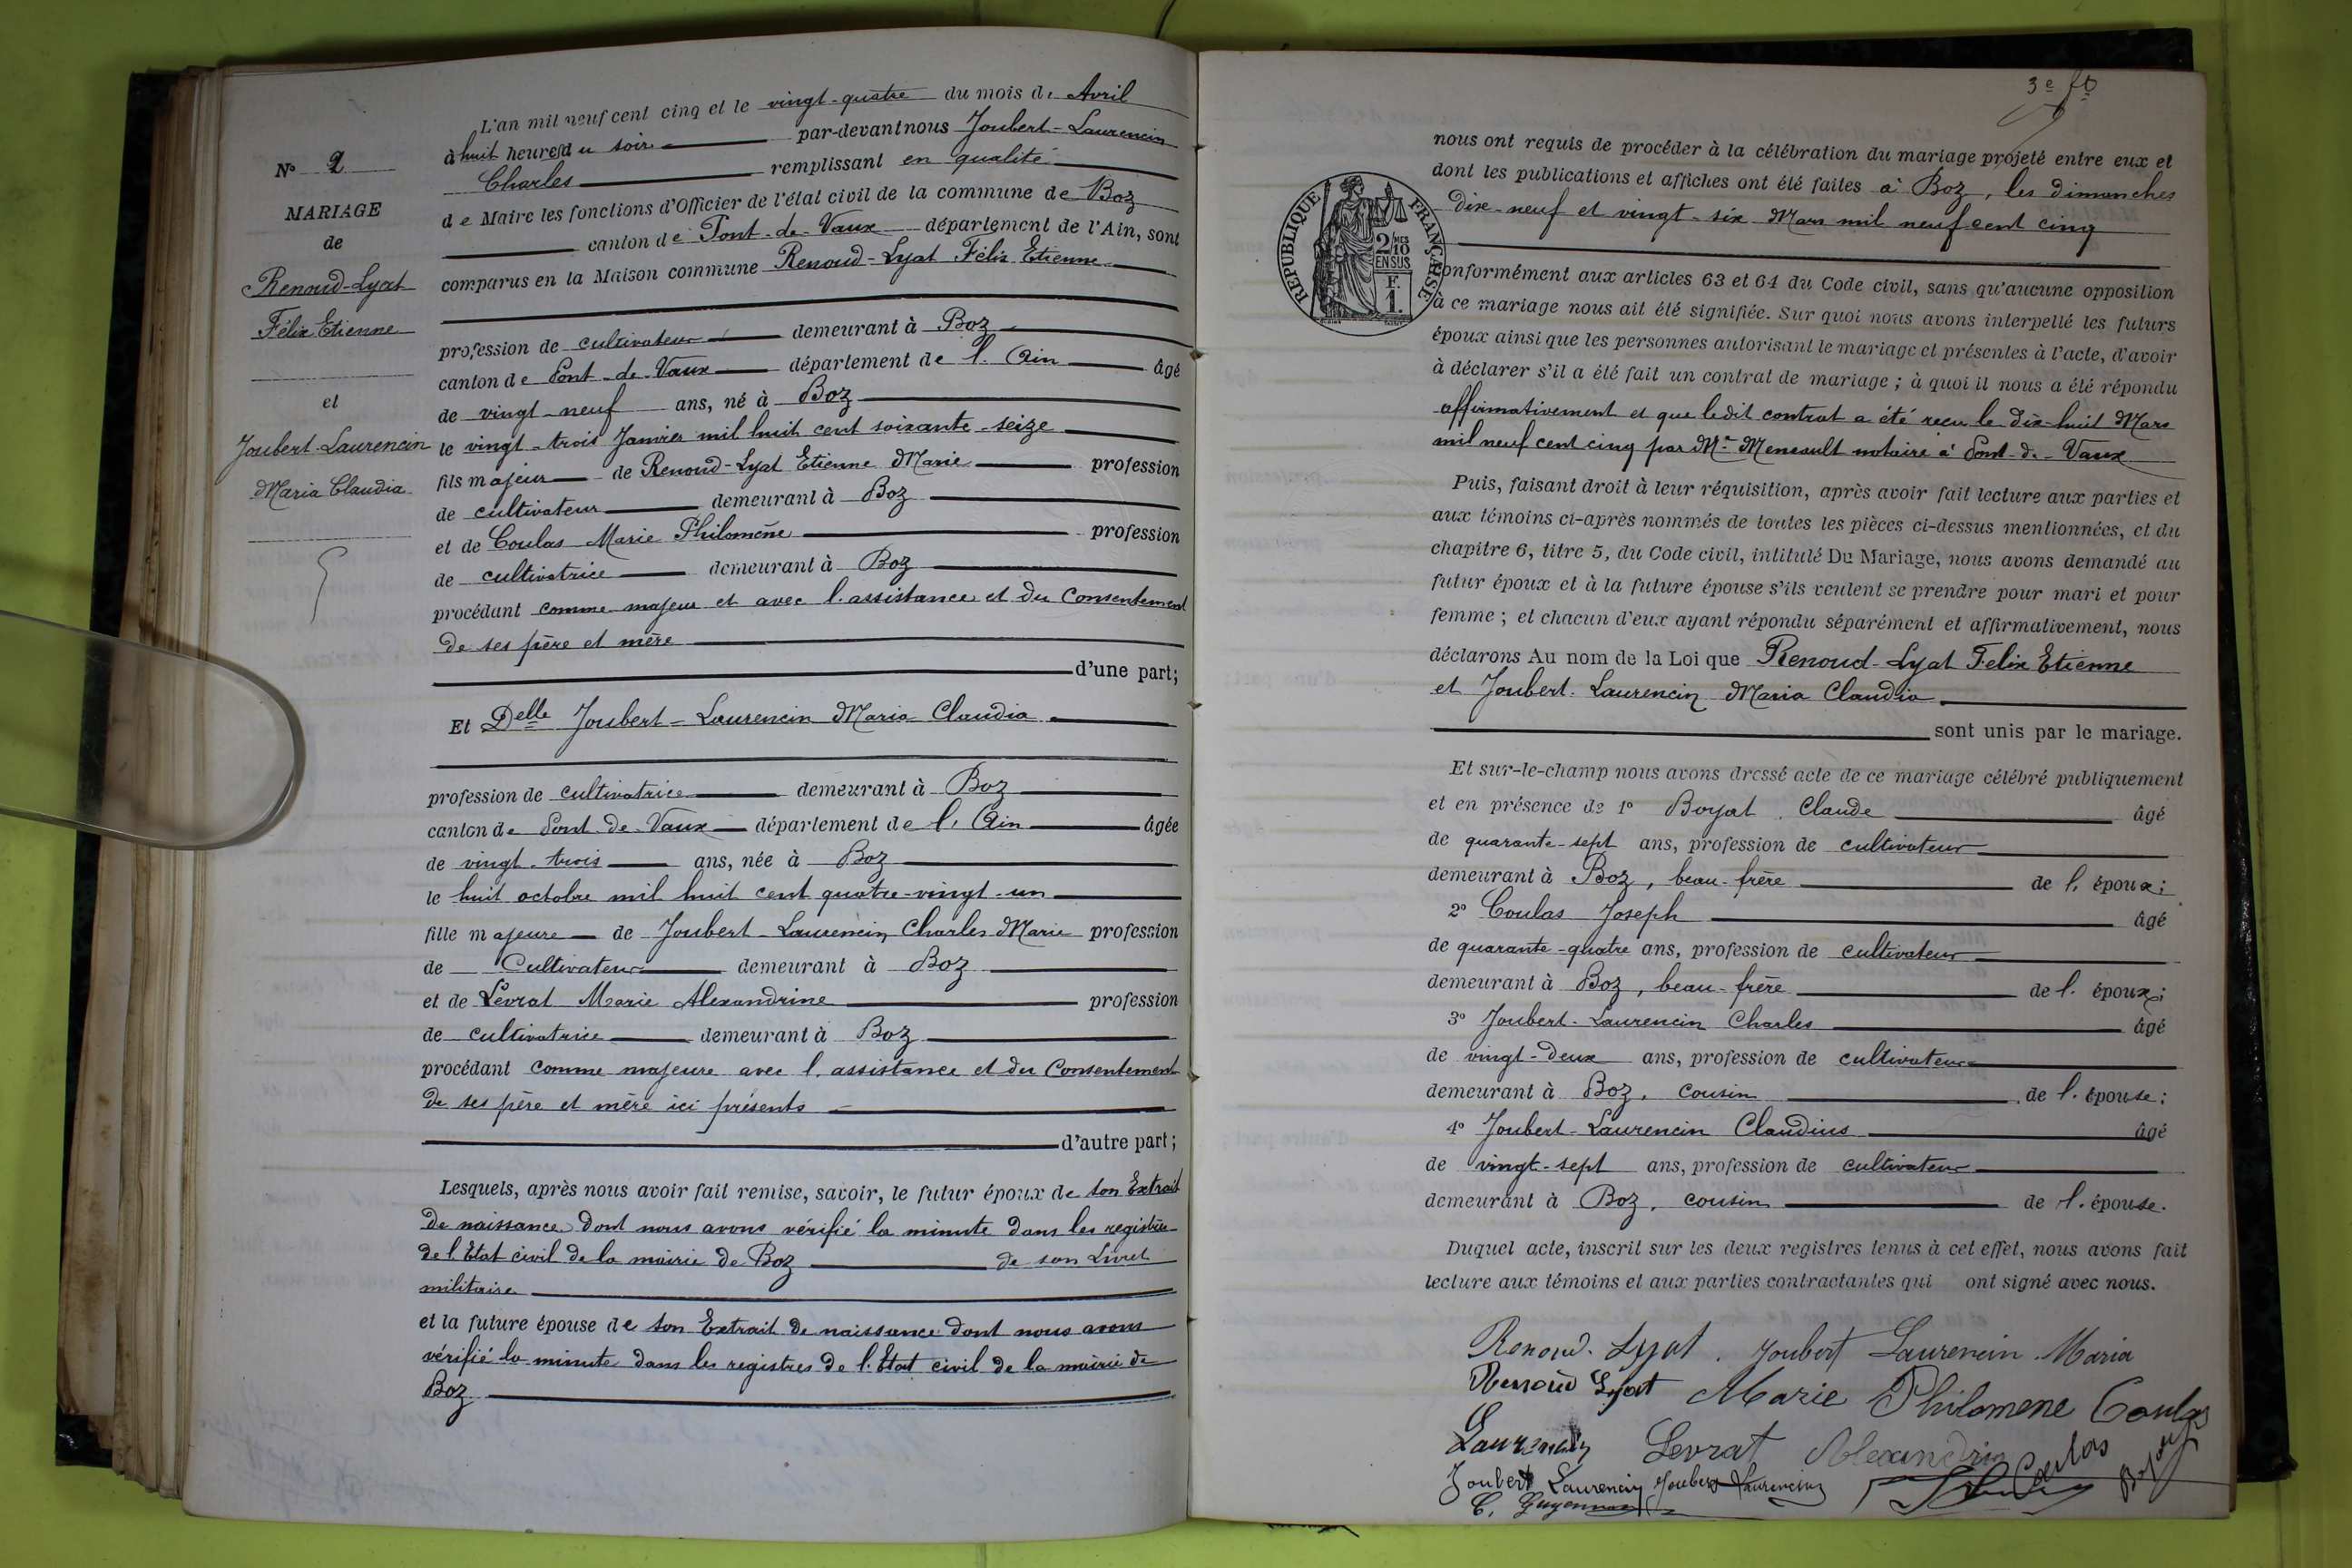 N° 2
MARIAGE
de
Renoud-Lyat
Félix Etienne
et
Joubert-Laurencin
Maria Claudia
L'an mil neuf cent cinq et le vingt-quatre du mois de Avril
à huit heures du soir par-devant nous Joubert-Laurencin
Charles remplissant en qualité
de Maire les fonctions d'Officier de l'état civil de la commune de Boz
canton de Pont-de-Vaux département de l'Ain, sont
comparus en la Maison commune Renoud-Lyat Félix Etienne
profession de cultivateur demeurant à Boz
canton de Pont-de-Vaux département de l'Ain âgé
de vingt-neuf ans, né à Boz
le vingt-trois Janvier mil huit cent soixante-seize
fils majeur de Renoud-Lyat Etienne Marie profession
de cultivateur demeurant à Boz
et de Coulas Marie Philomène profession
de cultivatrice demeurant à Boz
procédant comme majeur et avec l'assistance et du Consentement
de ses père et mère
d'une part;
Et Delle Joubert-Laurencin Maria Claudia
profession de cultivatrice demeurant à Boz
canton de Pont-de-Vaux département de l'Ain âgée
de vingt-trois ans, née à Boz
le huit octobre mil huit cent quatre-vingt-un
fille majeure de Joubert-Laurencin Charles Marie profession
de Cultivateur demeurant à Boz
et de Levrat Marie Alexandrine profession
de cultivatrice demeurant à Boz
procédant comme majeure avec l'assistance et du Consentement
de ses père et mère ici présents
d'autre part;
Lesquels, après nous avoir fait remise, savoir, le futur époux de son Extrait
de naissance dont nous avons vérifié la minute dans les registres
de l'Etat civil de la mairie de Boz de son Livret
militaire
et la future épouse de son Extrait de naissance dont nous avons
vérifié la minute dans les registres de l'Etat civil de la mairie de
Boz
3e ft
RÉPUBLIQUE FRANÇAISE
2/10 MES
EN SUS
F.
1.
nous ont requis de procéder à la célébration du mariage projeté entre eux et
dont les publications et affiches ont été faites à Boz, les dimanches
Dix-neuf et vingt-six Mars mil neuf cent cinq
conformément aux articles 63 et 64 du Code civil, sans qu'aucune opposition
à ce mariage nous ait été signifiée. Sur quoi nous avons interpellé les futurs
époux ainsi que les personnes autorisant le mariage et présentes à l'acte, d'avoir
à déclarer s'il a été fait un contrat de mariage; à quoi il nous a été répondu
affirmativement et que ledit contrat a été reçu le dix-huit Mars
mil neuf cent cinq par Me Meneault notaire à Pont-de-Vaux
Puis, faisant droit à leur réquisition, après avoir fait lecture aux parties et
aux témoins ci-après nommés de toutes les pièces ci-dessus mentionnées, et du
chapitre 6, titre 5, du Code civil, intitulé Du Mariage, nous avons demandé au
futur époux et à la future épouse s'ils veulent se prendre pour mari et pour
femme; et chacun d'eux ayant répondu séparément et affirmativement, nous
déclarons Au nom de la Loi que Renoud-Lyat Felix Etienne
et Joubert-Laurencin Maria Claudia
sont unis par le mariage.
Et sur-le-champ nous avons dressé acte de ce mariage célébré publiquement
et en présence de 1° Boyat Claude âgé
de quarante-sept ans, profession de cultivateur
demeurant à Boz, beau-frère de l'époux;
2° Coulas Joseph âgé
de quarante-quatre ans, profession de cultivateur
demeurant à Boz, beau-frère de l'époux;
3° Joubert-Laurencin Charles âgé
de vingt-deux ans, profession de cultivateur
demeurant à Boz, cousin de l'épouse;
4° Joubert-Laurencin Claudius âgé
de vingt-sept ans, profession de cultivateur
demeurant à Boz, cousin de l'épouse.
Duquel acte, inscrit sur les deux registres tenus à cet effet, nous avons fait
lecture aux témoins et aux parties contractantes qui ont signé avec nous.
Renoud-Lyat Joubert Laurencin Maria
Renoud Lyat Marie Philomene Coulas
Laurencin Levrat Alexandrin
Joubert Laurencin Joubert Laurencin Coulas Boyat
C. Guyennon